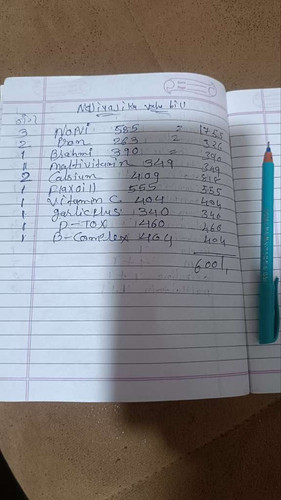 bill
3 NONI 585 = 1755
2 Dan 263 = 526
1 Brahmi 390 = 390
11 multivitamin 349 349
2 Calsium 409 818
1 Flaxoill 555 555
1 Vitamin C 404 404
1 garlicplus 340 340
1 D-TOX 460 460
1 B-Complex 404 404
6001/